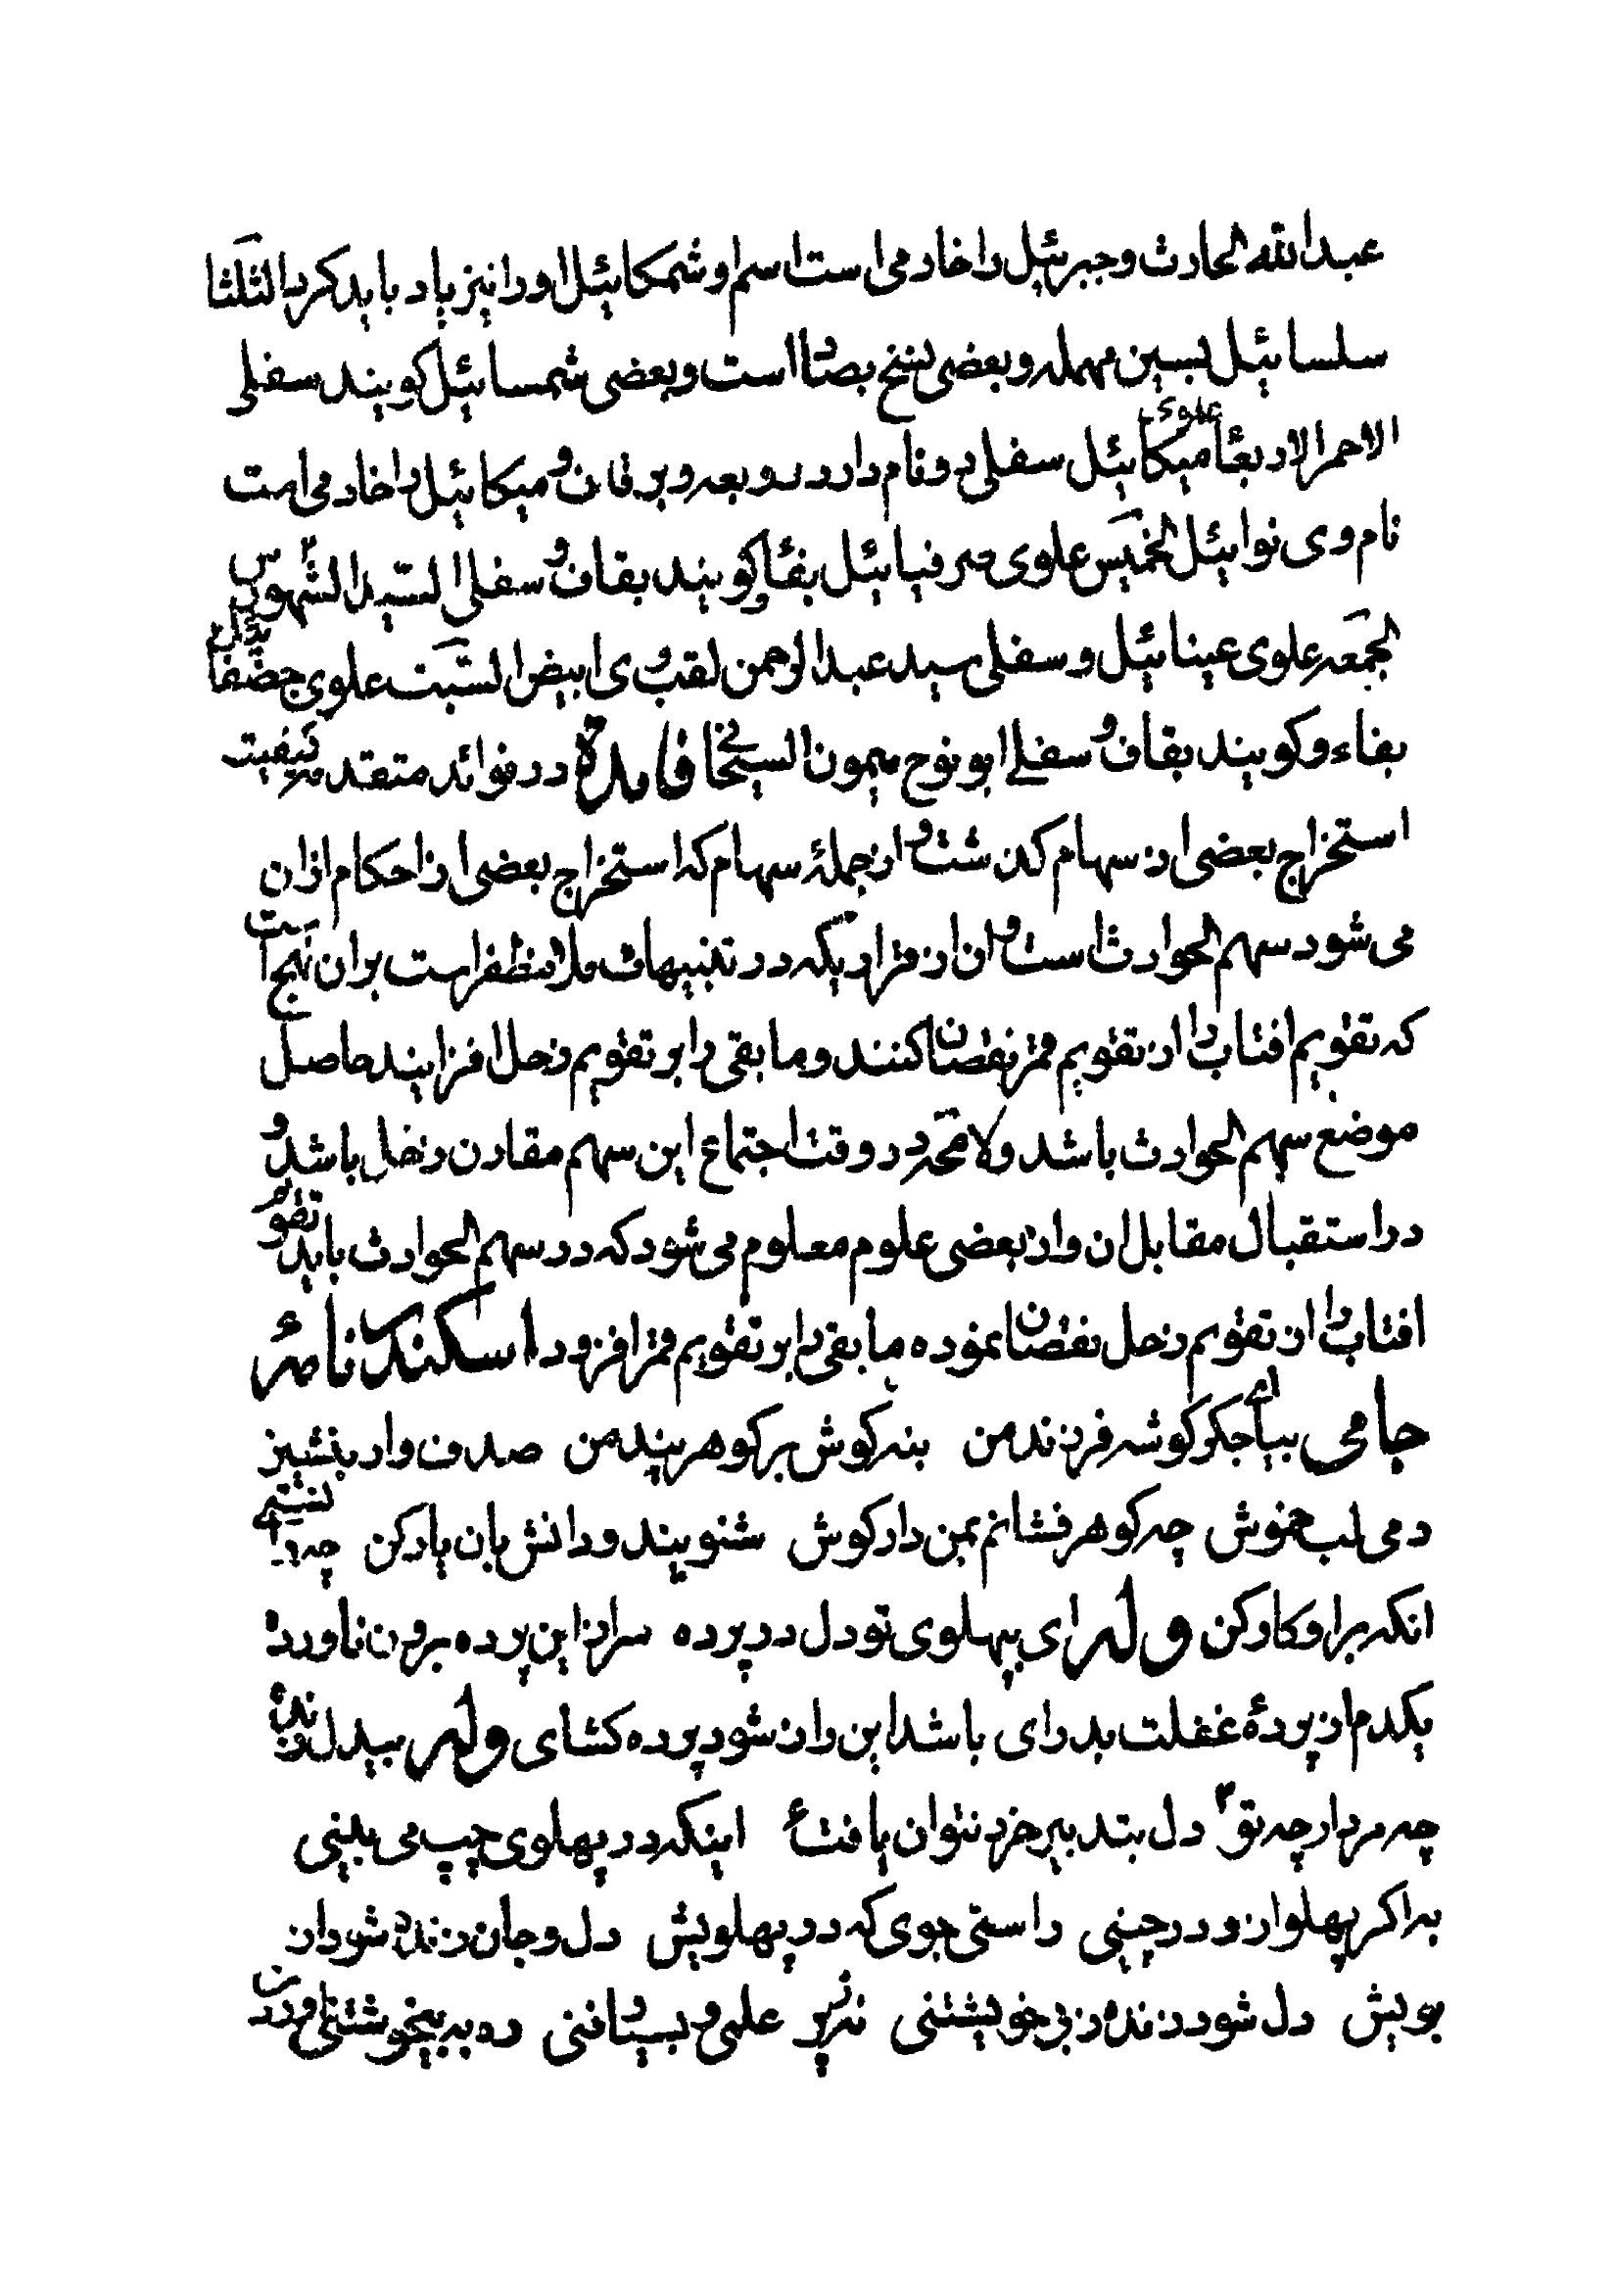 عبدالله الحارث و جبرئیل را خادمی است اسم او شمکائیل او را نیز یاد باید کرد الثلثا
سلسائیل بسین مهمله و بعضی نسخ بصاد است و بعضی شمسائیل کویند سفلی
الاحمر الاربعا علوی میکائیل سفلی دو نام دارد زوبعه و برقان و میکائیل را خادمی است
نام وی نوائیل الخمیس علوی صرفیائیل بفا و کویند بقاف و سفلی السید الشمهورس
الجمعه علوی عینائیل و سفلی سید عبدالرحمن لقب وی ابیض السبت علوی
بفاء و کویند بقاف و سفلی ابو نوح میمون السیخافی فایدة در فوائد متقدمه کیفیت
استخراج بعضی از سهام کذشت و از جملهٔ سهام که استخراج بعضی از احکام ازان
می شود سهم الحوادث است و ان از قراریکه در تنبیهات ملا مظفر است بران نهج است
که تقویم افتاب را از تقویم قمر نقصان کنند و مابقی را بر تقویم زحل افزایند حاصل
موضع سهم الحوادث باشد و لامحه در وقت اجتماع این سهم مقارن زحل باشد و
در استقبال مقابل ان و از بعضی علوم معلوم می شود که در سهم الحوادث باید تقویم
افتاب را از تقویم زحل نقصان نموده مابقی را بر تقویم قمر افزود اسکندر نامهٔ
جامی بیا ای جکر کوشه فرزند من بنه کوش بر کوهر پند من صدف وار بنشین
دمی لب خموش چه کوهر فشانم بمن دار کوش شنو پند و دانش بان یار کن چه دانستی
انکه برا و کار کن وله ای بپهلوی تو دل در پرده سر ازین پرده برون ناورده
یکدم از پردهٔ غفلت بدرای باشد این راز شود پرده کشای وله بیدل زنده
چه مردار چه تو دل بتدبیر خرد نتوان یافت اینکه در پهلوی چپ می بینی
به اکر پهلو از و در چینی راستی جوی که در پهلویش دل و جان زنده شود از
بویش دل شود زنده ز بی خویشتنی نه ز پر علمی و بسیار فنی ره به بیخویشتنی